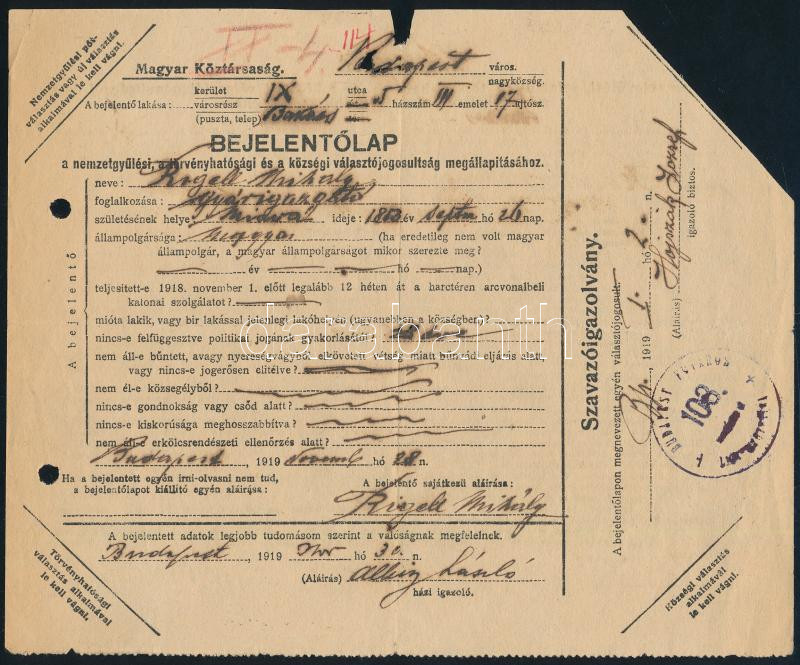 Nemzetgyűlési pót-
választás vagy új választás
alkalmával le kell vágni.
Magyar Köztársaság.
Budapest város.
nagyközség.
kerület IX utca
A bejelentő lakása: városrész 5 házszám III emelet 17 ajtósz.
(puszta, telep) Bakáts
BEJELENTŐLAP
a nemzetgyűlési, a törvényhatósági és a községi választójogosultság megállapitásához.
A bejelentő
neve: Rigell Mihály
foglalkozása: gyárigazgató
születésének helye: ideje: év septem hó 26 nap.
állampolgársága: magyar (ha eredetileg nem volt magyar
állampolgár, a magyar állampolgárságot mikor szerezte meg?
év hó nap.)
teljesített-e 1918. november 1. előtt legalább 12 héten át a harctéren arcvonalbeli
katonai szolgálatot?
mióta lakik, vagy bir lakással jelenlegi lakóhelyén (ugyanebben a községben)?
nincs-e felfüggesztve politikai jogának gyakorlásától?
nem áll-e bűntett, avagy nyereségvágyból elkövetett vétség miatt bűnvád eljárás alatt,
vagy nincs-e jogerősen elitélve?
nem él-e községélyből?
nincs-e gondnokság vagy csőd alatt?
nincs-e kiskorúsága meghosszabbítva?
nem áll-e erkölcsrendészeti ellenőrzés alatt?
Budapest, 1919 Novemb hó 28 n.
Ha a bejelentett egyén irni-olvasni nem tud,
a bejelentőlapot kiállító egyén aláirása:
A bejelentő sajátkezű aláirása:
Rigell Mihály
A bejelentett adatok legjobb tudomásom szerint a valóságnak megfelelnek.
Budapest, 1919 Nov hó 30 n.
(Aláirás) László
házi igazoló.
Törvényhatósági
választás alkalmával
le kell vágni.
Szavazóigazolvány.
A bejelentőlapon megnevezett egyén választójogosult.
Bp. 1919 hó 2. n.
(Aláirás) Hojszák József
igazoló biztos.
BUDAPEST FŐVÁROS
108.
Községi választás
alkalmával
le kell vágni.
darabanth